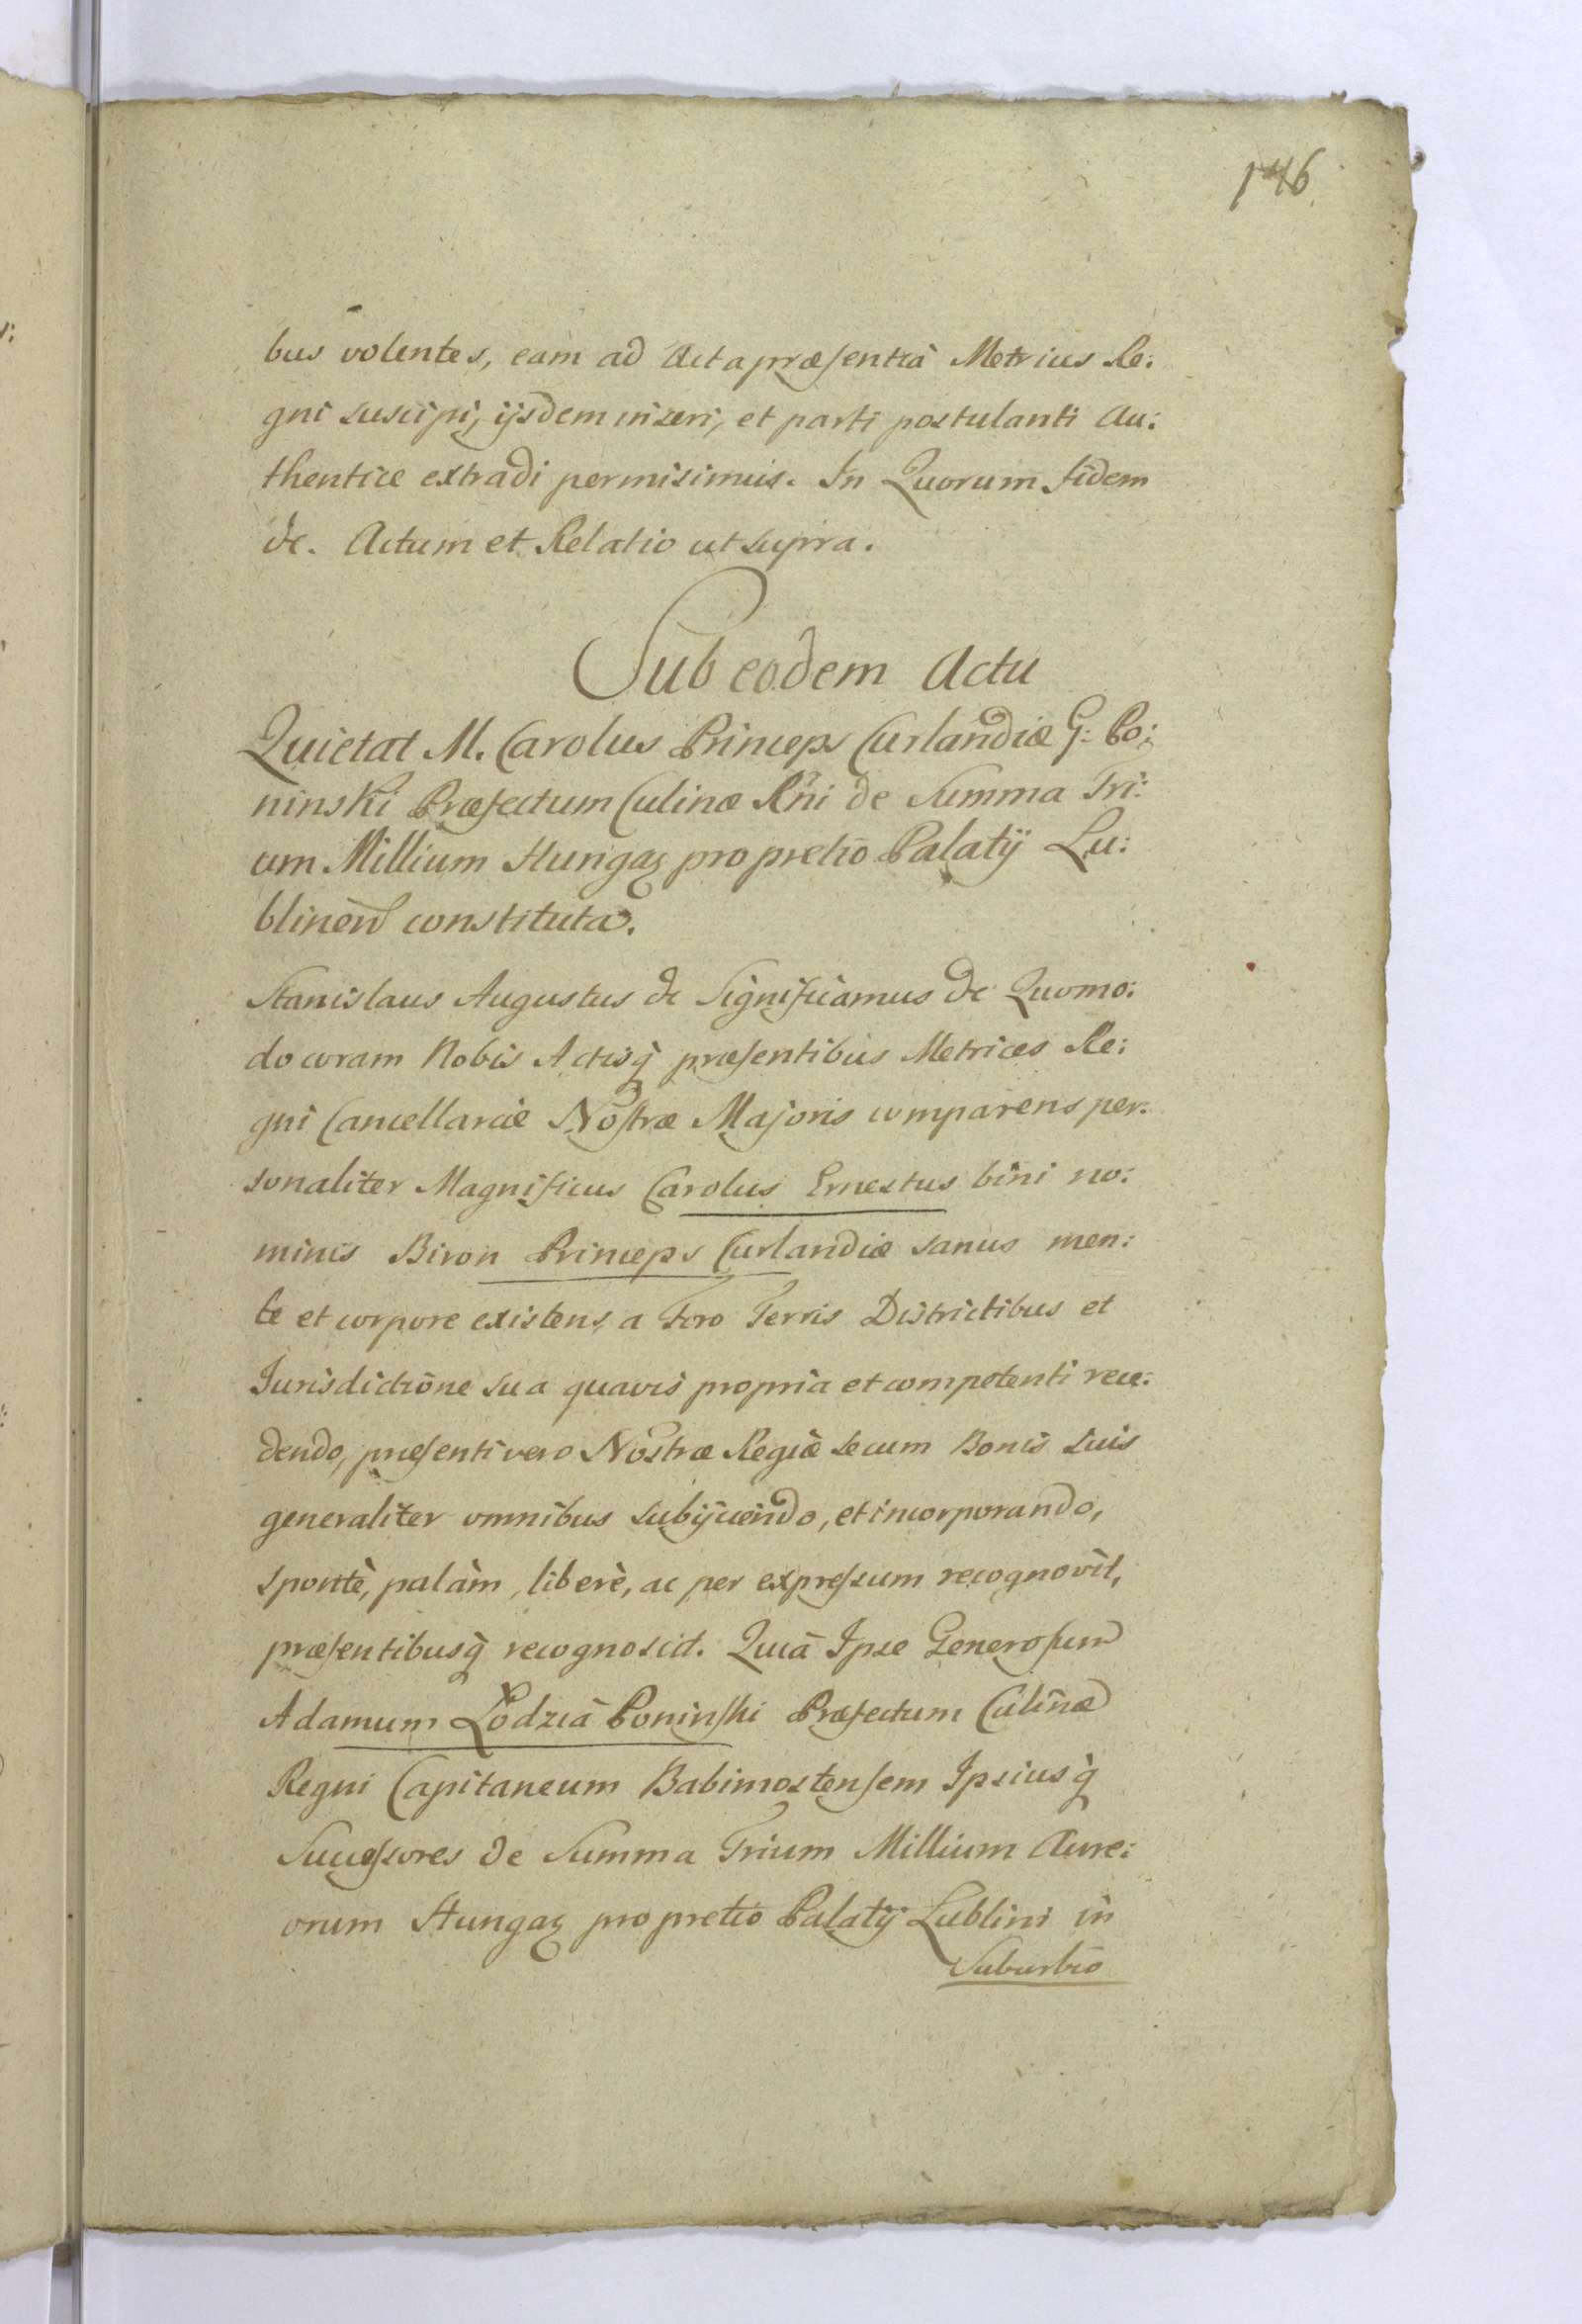 146
bus volentes, eam ad Acta præsentia Metrices Re:
gni suscipi, ijsdem inseri, et parti postulanti Au:
thentice extradi permisimus. In Quorum fidem
&c. Actum et Relatio ut supra.
Sub eodem Actu
Quietat M. Carolus Princeps Curlandiæ G: Po:
ninski Præfectum Culinæ Rñi de Summa Tri:
um Millium Hungaꝝ pro pretio Palatij Lu:
blineñ constituta.
Stanislaus Augustus &c Significamus &c Quomo:
do coram Nobis Actisq̀ præsentibus Metrices Re:
gni Cancellariæ Nostræ Majoris comparens per:
sonaliter Magnificus Carolus Ernestus bini no:
minis Biron Princeps Curlandiæ sanus men:
te et corpore existens, a Foro Terris Districtibus et
Jurisdictione sua quavis propria et competenti rece:
dendo, præsenti vero Nostræ Regiæ secum Bonis suis
generaliter omnibus subijciendo, et incorporando,
spontè, palàm, liberè, ac per expressum recognovit,
præsentibusq̀ recognoscit. Quia Ipse Generosum
Adamum Łodzia Poninski Præfectum Culinæ
Regni Capitaneum Babimostensem Ipsiusq̀
Successores de Summa Trium Millium Aure:
orum Hungaꝝ pro pretio Palatij Lublini in
Suburbio